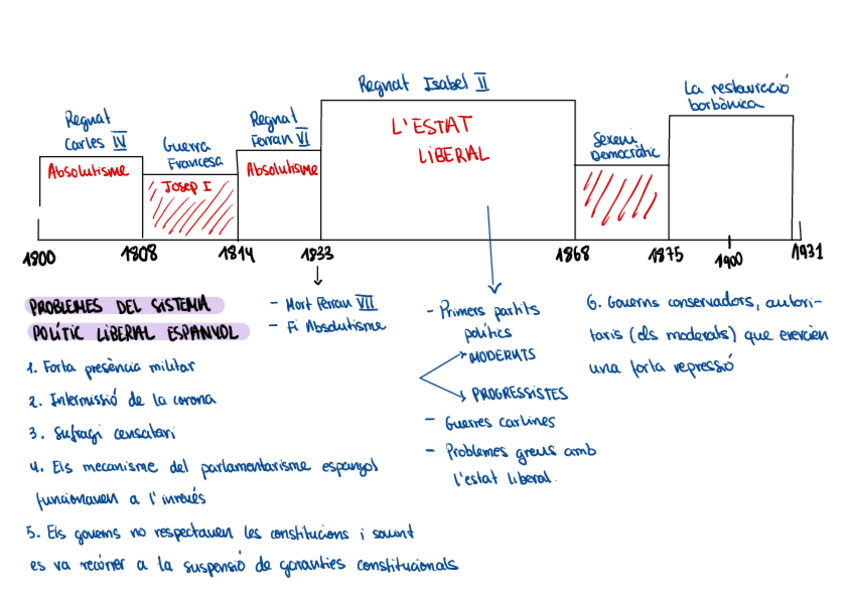 Regnat Isabel II
La restauració
borbònica
Regnat
Carles IV
Guerra
Francesa
Regnat
Ferran VI
L'ESTAT
LIBERAL
Sexeni
Democràtic
Absolutisme
Josep I
Absolutisme
1800
1808
1814
1833
1868
1875
1900
1931
PROBLEMES DEL SISTEMA
POLÍTIC LIBERAL ESPANYOL
1. Forta presència militar
2. Intermissió de la corona
3. Sufragi censatari
4. Els mecanisme del parlamentarisme espanyol
funcionaven a l'inrevés
5. Els governs no respectaven les constitucions i sovint
es va recórrer a la suspensió de garanties constitucionals
- Mort Ferran VII
- Fi Absolutisme
- Primers partits
polítics
MODERATS
PROGRESSISTES
- Guerres carlines
- Problemes greus amb
l'estat liberal.
6. Governs conservadors, autori-
taris (els moderats) que exercien
una forta repressió